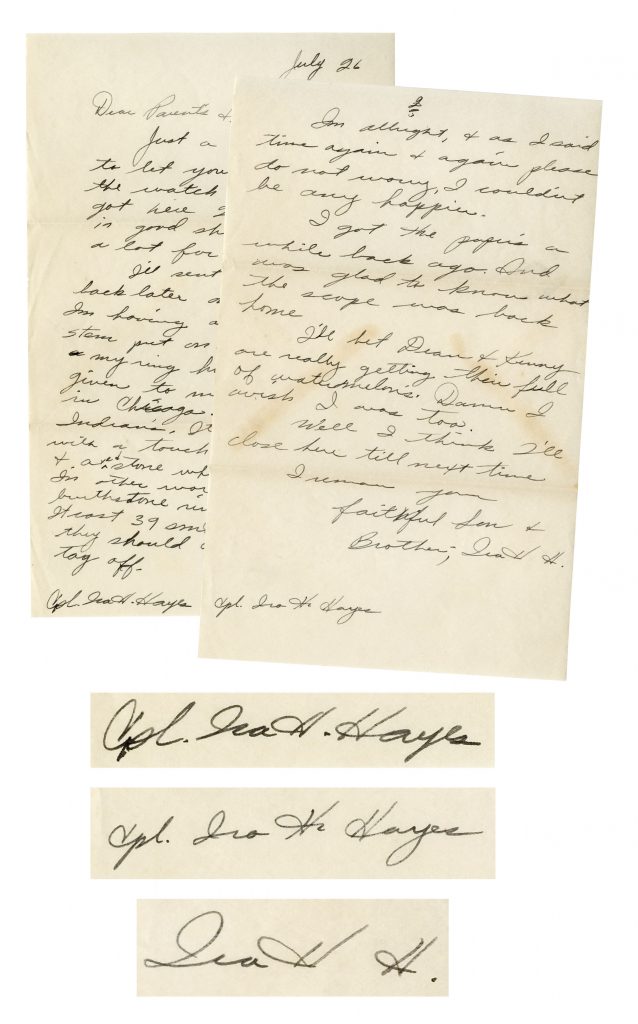 July 26
Dear Parents &
Just a
to let you
the watch
got here
is good sh
a lot for
I'll sent
back later
Im having a
stem put on
my ring h
given to m
in Chicago.
Indian's. It
with a touch
& a stone wh
In other wor
birthstone ri
It cost 39 sm
they should
tag off.
Cpl. Ira H. Hayes
2
Im allright, & as I said
time again & again please
do not worry, I couldn't
be any happier.
I got the papers a
while back ago. And
was glad to know what
the scope was back
home
I'll bet Dean & Kenny
are really getting their full
of watermelons. Damn I
wish I was too.
Well I think I'll
close here till next time
I remain your
faithful Son &
Brother, Ira H. H.
Cpl. Ira H. Hayes
Cpl. Ira H. Hayes
Cpl. Ira H. Hayes
Ira H H.